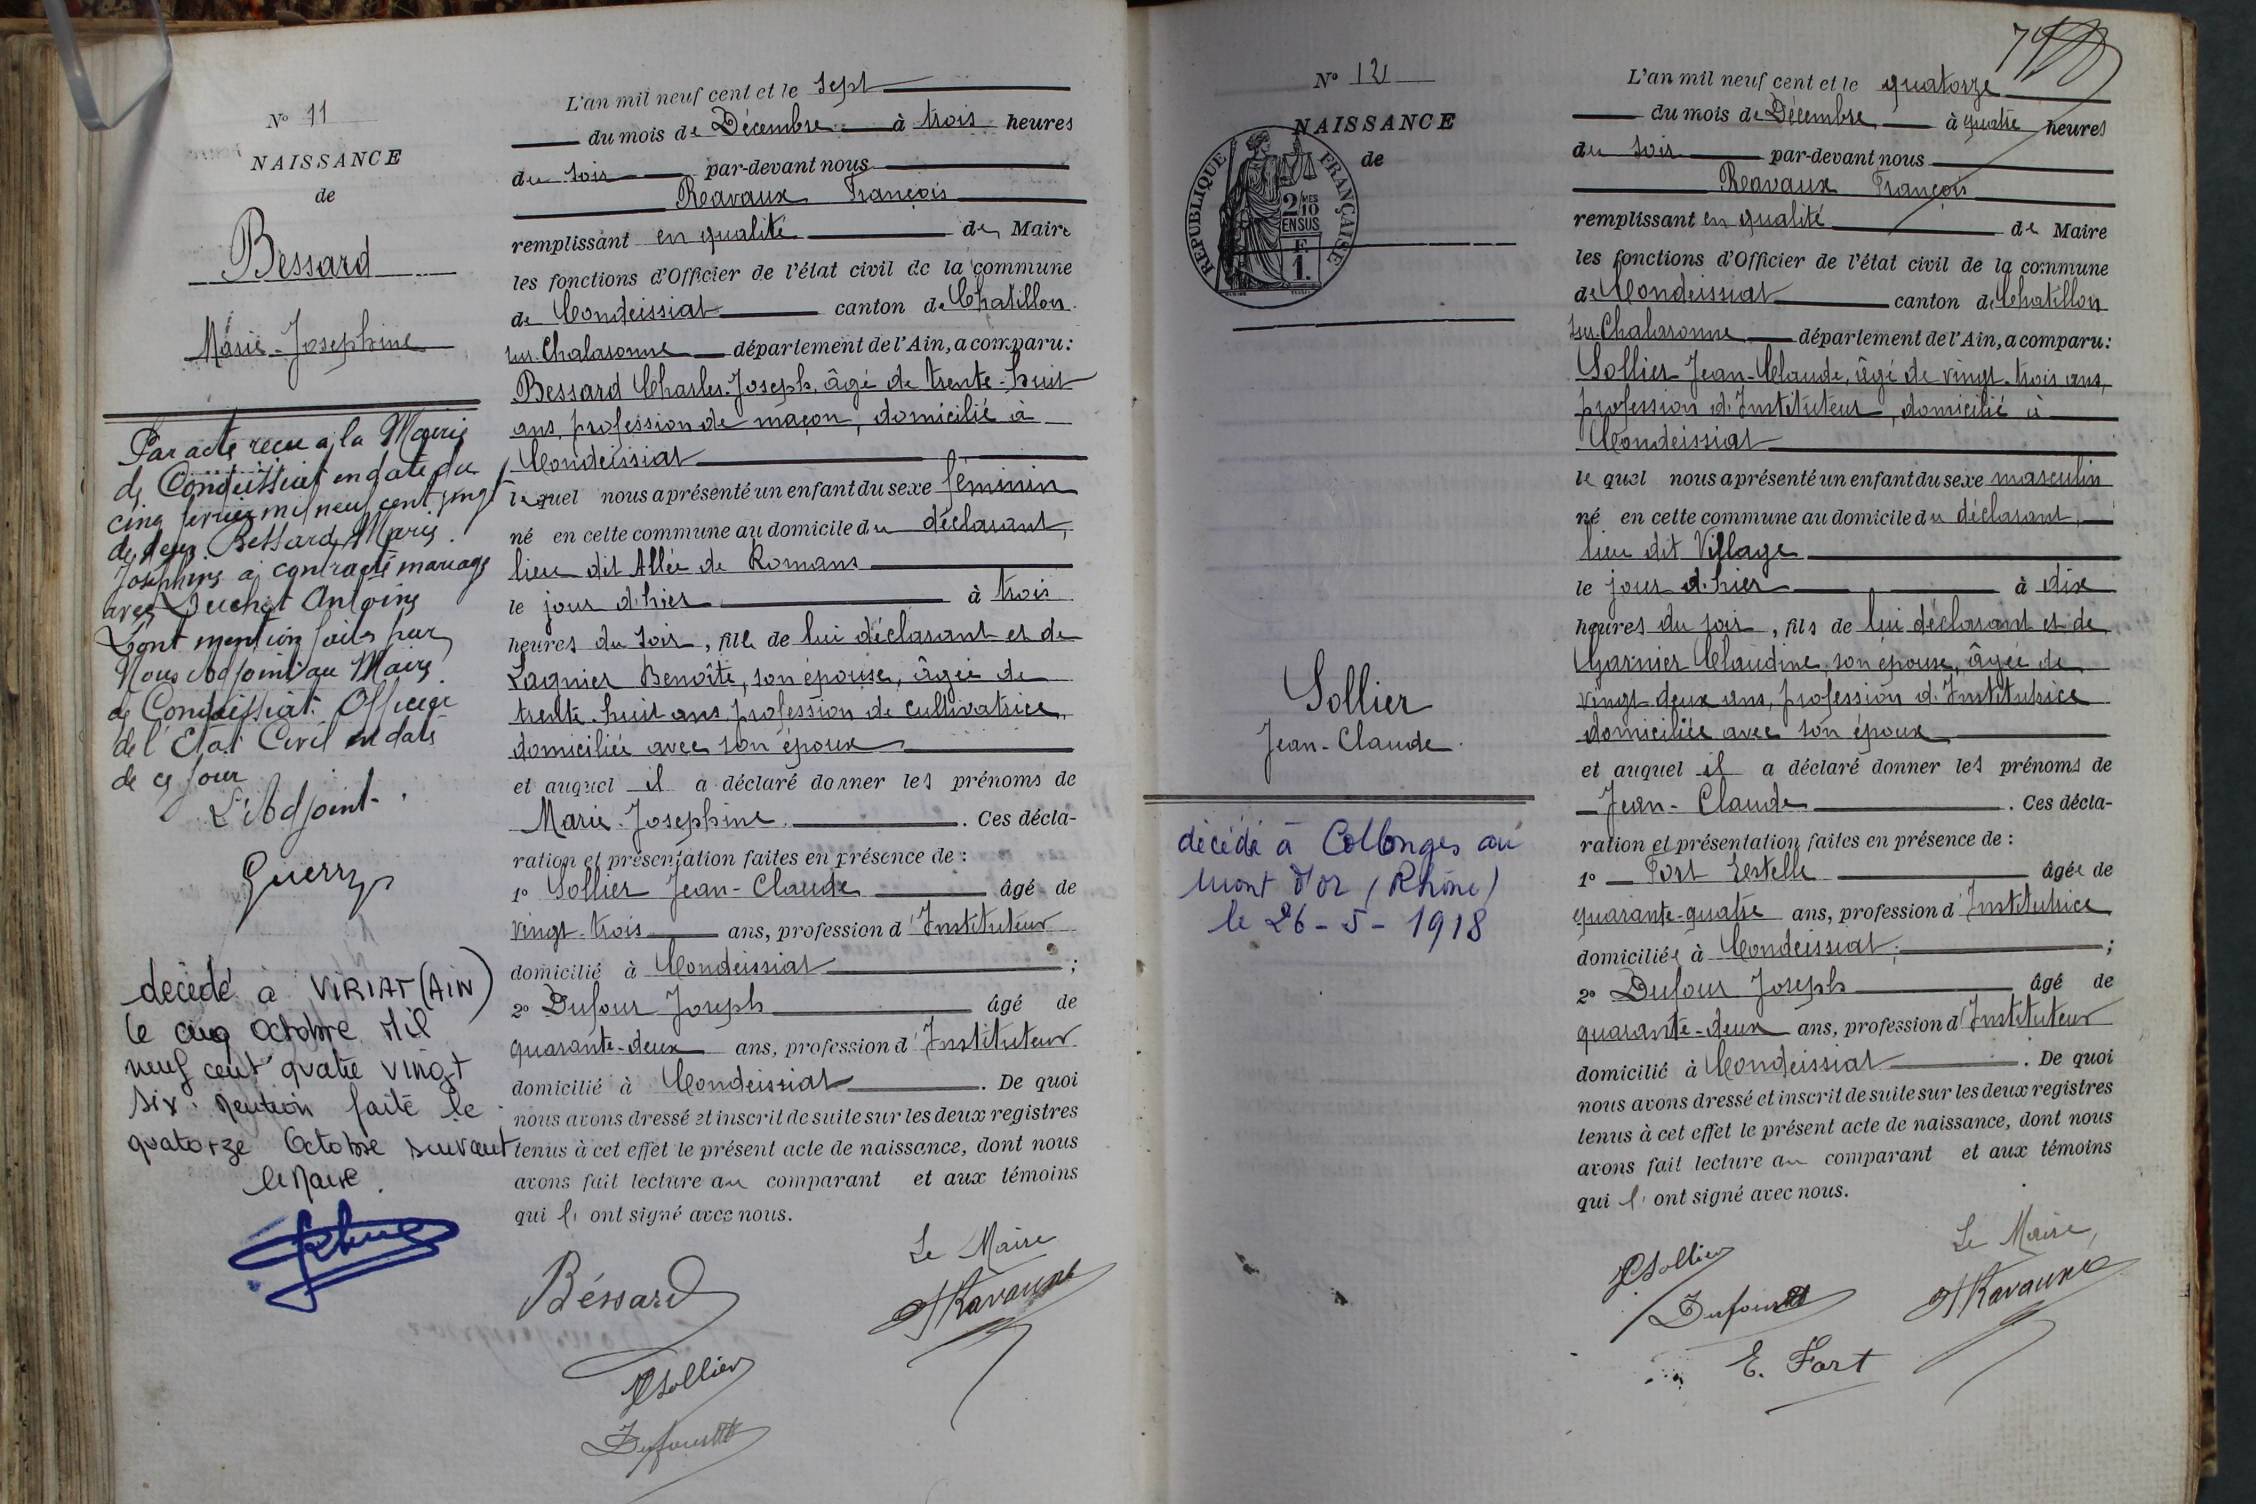 N° 11
NAISSANCE
de
Bessard
Marie-Josephine
Par acte recu à la Mairie
de Condeissiat en date du
cinq février mil neuf cent vingt
deux Bessard Marie
Josephine a contracté mariage
avec Duchet Antoine
Dont mention faite par
Nous adjoint au Maire
de Condeissiat Officier
de l'Etat Civil en date
de ce jour
L'Adjoint
Guerry
décédé à VIRIAT (AIN)
le cinq Octobre Mil
neuf cent quatre vingt
six. Mention faite le
quatorze Octobre suivant
le Maire.
L'an mil neuf cent et le sept
du mois de Décembre à trois heures
du soir par-devant nous
Ravaux François
remplissant en qualité de Maire
les fonctions d'Officier de l'état civil de la commune
de Condeissiat canton de Chatillon
sur Chalaronne département de l'Ain, a comparu:
Bessard Charles-Joseph, âgé de trente-huit
ans, profession de maçon, domicilié à
Condeissiat
lequel nous a présenté un enfant du sexe féminin
né en cette commune au domicile du déclarant,
lieu dit Allée de Romans
le jour d'hier à trois
heures du soir, fille de lui déclarant et de
Lagnier Benoîte, son épouse, âgée de
trente-huit ans, profession de cultivatrice,
domiciliée avec son époux
et auquel il a déclaré donner les prénoms de
Marie-Josephine. Ces décla-
ration et présentation faites en présence de :
1° Sollier Jean-Claude âgé de
vingt-trois ans, profession d'Instituteur
domicilié à Condeissiat ;
2° Dufour Joseph âgé de
quarante-deux ans, profession d'Instituteur
domicilié à Condeissiat. De quoi
nous avons dressé et inscrit de suite sur les deux registres
tenus à cet effet le présent acte de naissance, dont nous
avons fait lecture au comparant et aux témoins
qui l'ont signé avec nous.
Le Maire
Béssard
Ravaux
JCSollier
Dufour
N° 12
NAISSANCE
de
RÉPUBLIQUE FRANÇAISE
2/10MES
EN SUS
F.
1.
Sollier
Jean-Claude.
décédé à Collonges au
Mont d'or (Rhône)
le 26-5-1918
L'an mil neuf cent et le quatorze
du mois de Décembre à quatre heures
du soir par-devant nous
Ravaux François
remplissant en qualité de Maire
les fonctions d'Officier de l'état civil de la commune
de Condeissiat canton de Chatillon
sur Chalaronne département de l'Ain, a comparu:
Sollier Jean-Claude, âgé de vingt-trois ans,
profession d'Instituteur, domicilié à
Condeissiat
lequel nous a présenté un enfant du sexe masculin
né en cette commune au domicile du déclarant,
lieu dit Village
le jour d'hier à dix
heures du soir, fils de lui déclarant et de
Garnier Claudine, son épouse, âgée de
vingt-deux ans, profession d'Institutrice
domiciliée avec son époux
et auquel il a déclaré donner les prénoms de
Jean-Claude. Ces décla-
ration et présentation faites en présence de :
1° Fort Estelle âgée de
quarante-quatre ans, profession d'Institutrice
domiciliée à Condeissiat ;
2° Dufour Joseph âgé de
quarante-deux ans, profession d'Instituteur
domicilié à Condeissiat. De quoi
nous avons dressé et inscrit de suite sur les deux registres
tenus à cet effet le présent acte de naissance, dont nous
avons fait lecture au comparant et aux témoins
qui l'ont signé avec nous.
Le Maire,
JCSollier
Ravaux
Dufour
E. Fort